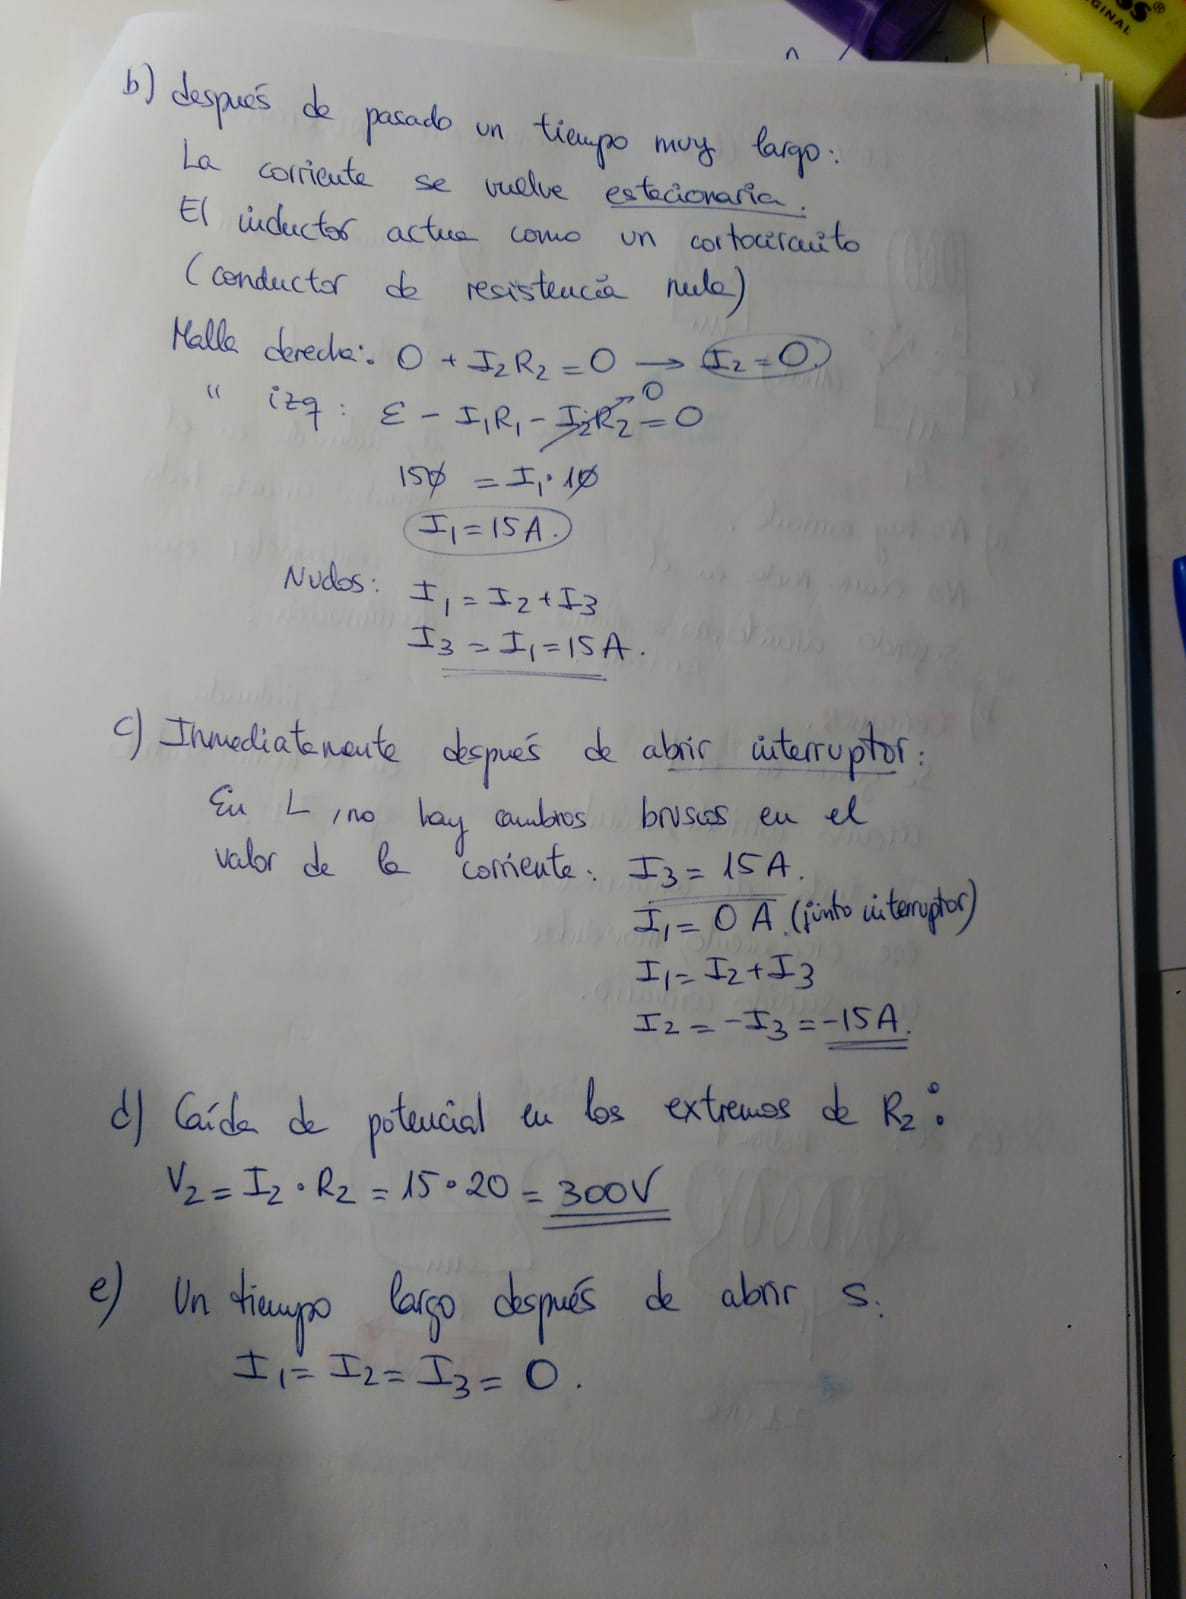 b) después de pasado un tiempo muy largo:
La corriente se vuelve estacionaria.
El inductor actua como un cortocircuito
(conductor de resistencia nula)
Malla derecha: 0 + I₂R₂ = 0 → I₂ = 0.
" izq: ε - I₁R₁ - I₂R₂ = 0
0
150 = I₁ · 10
I₁ = 15 A.
Nudos: I₁ = I₂ + I₃
I₃ = I₁ = 15 A.
c) Inmediatamente después de abrir interruptor:
En L, no hay cambios bruscos en el
valor de la corriente: I₃ = 15 A.
I₁ = 0 A. (junto interruptor)
I₁ = I₂ + I₃
I₂ = -I₃ = -15 A.
d) Caída de potencial en los extremos de R₂:
V₂ = I₂ · R₂ = 15 · 20 = 300V
e) Un tiempo largo después de abrir S:
I₁ = I₂ = I₃ = 0.
ORIGINAL